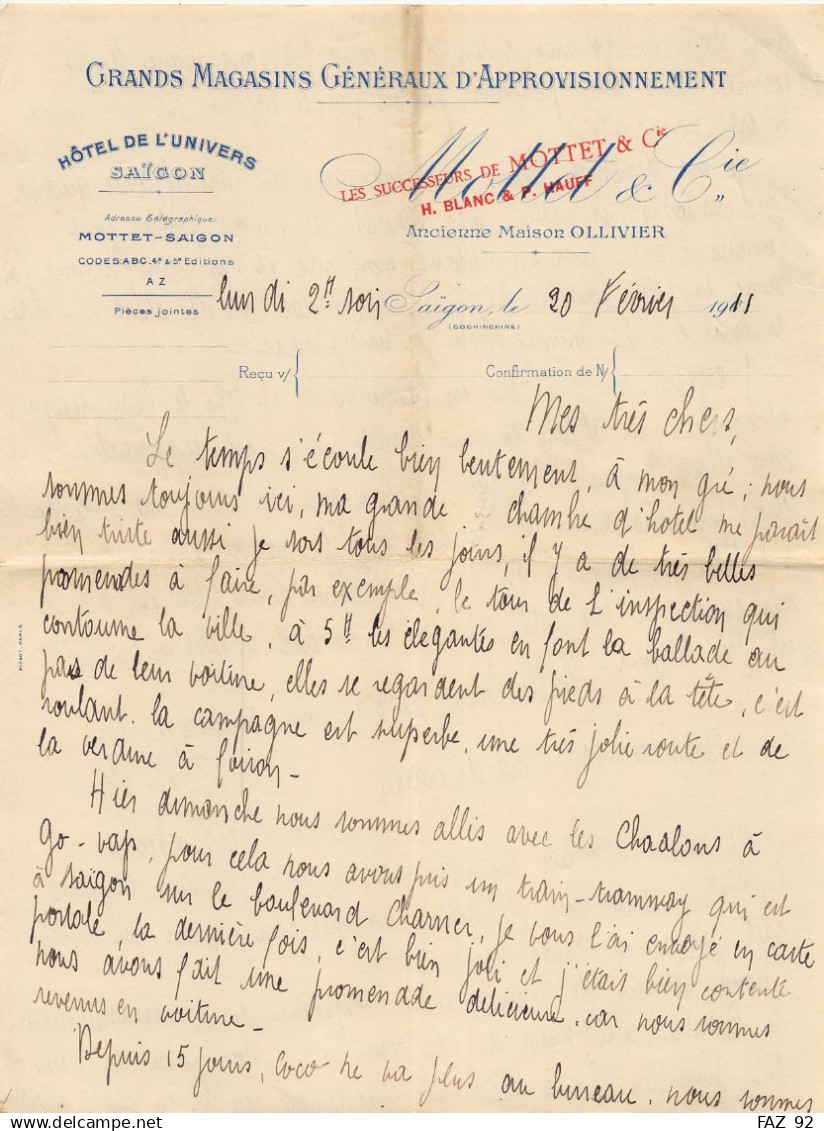 GRANDS MAGASINS GÉNÉRAUX D'APPROVISIONNEMENT
HÔTEL DE L'UNIVERS
SAÏGON
Mottet & Cie
LES SUCCESSEURS DE MOTTET & Cie
H. BLANC & P. HAUFF
Ancienne Maison OLLIVIER
Adresse Télégraphique:
MOTTET-SAIGON
CODES: ABC. 4e & 5e Editions
AZ
Pièces jointes
lundi 2h soir Saïgon, le 20 Février 1911
(COCHINCHINE)
Reçu v/ Confirmation de N/
Mes très chers,
Le temps s'écoule bien lentement, à mon gré; nous
sommes toujours ici, ma grande chambre d'hotel me parait
bien triste aussi je sors tous les jours, il y a de très belles
promenades à faire, par exemple, le tour de l'inspection qui
contourne la ville, à 5h les élégantes en font la ballade au
pas de leur voiture, elles se regardent des pieds à la tête, c'est
roulant. la campagne est superbe, une très jolie route et de
la verdure à foison -
Hier dimanche nous sommes allés avec les Chaalons à
Go-vap, pour cela nous avons pris un train-tramway qui est
à Saïgon sur le boulevard Charner, je vous l'ai envoyé en carte
postale, la dernière fois, c'est bien joli et j'étais bien contente
nous avons fait une promenade délicieuse, car nous sommes
revenus en voiture -
Depuis 15 jours, Coco ne va plus au bureau, nous sommes
FAZ 92